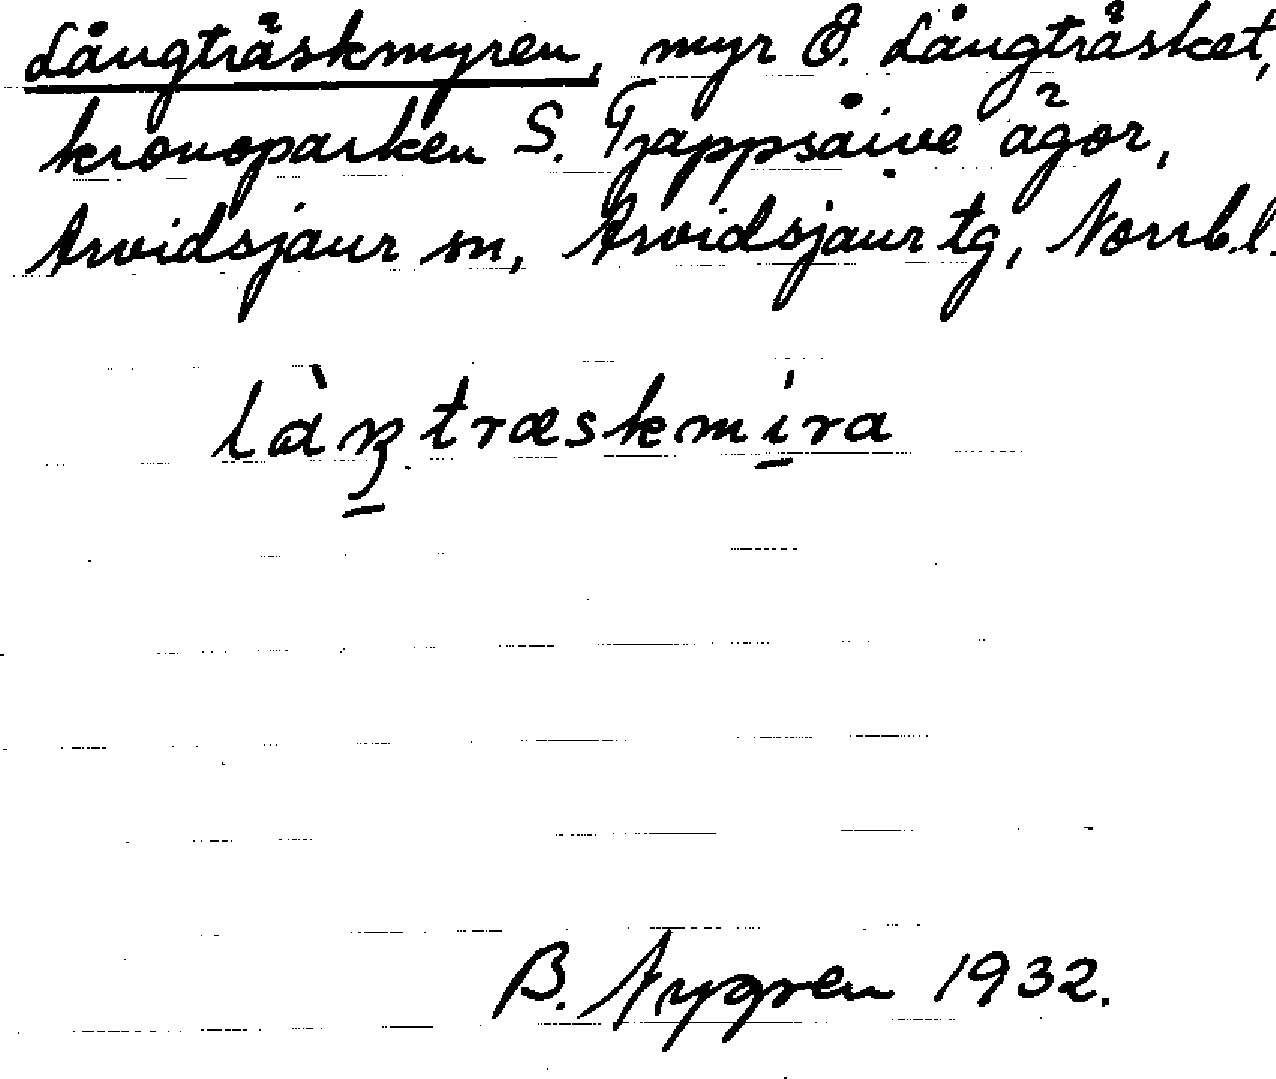 Långträskmyren, myr Ö. Långträsket,
kronoparken S. Tjappsåive ägor,
Arvidsjaur sn, Arvidsjaur tg, Norrb.l.
làŋtræskmi̱ra
B. Nygren 1932.